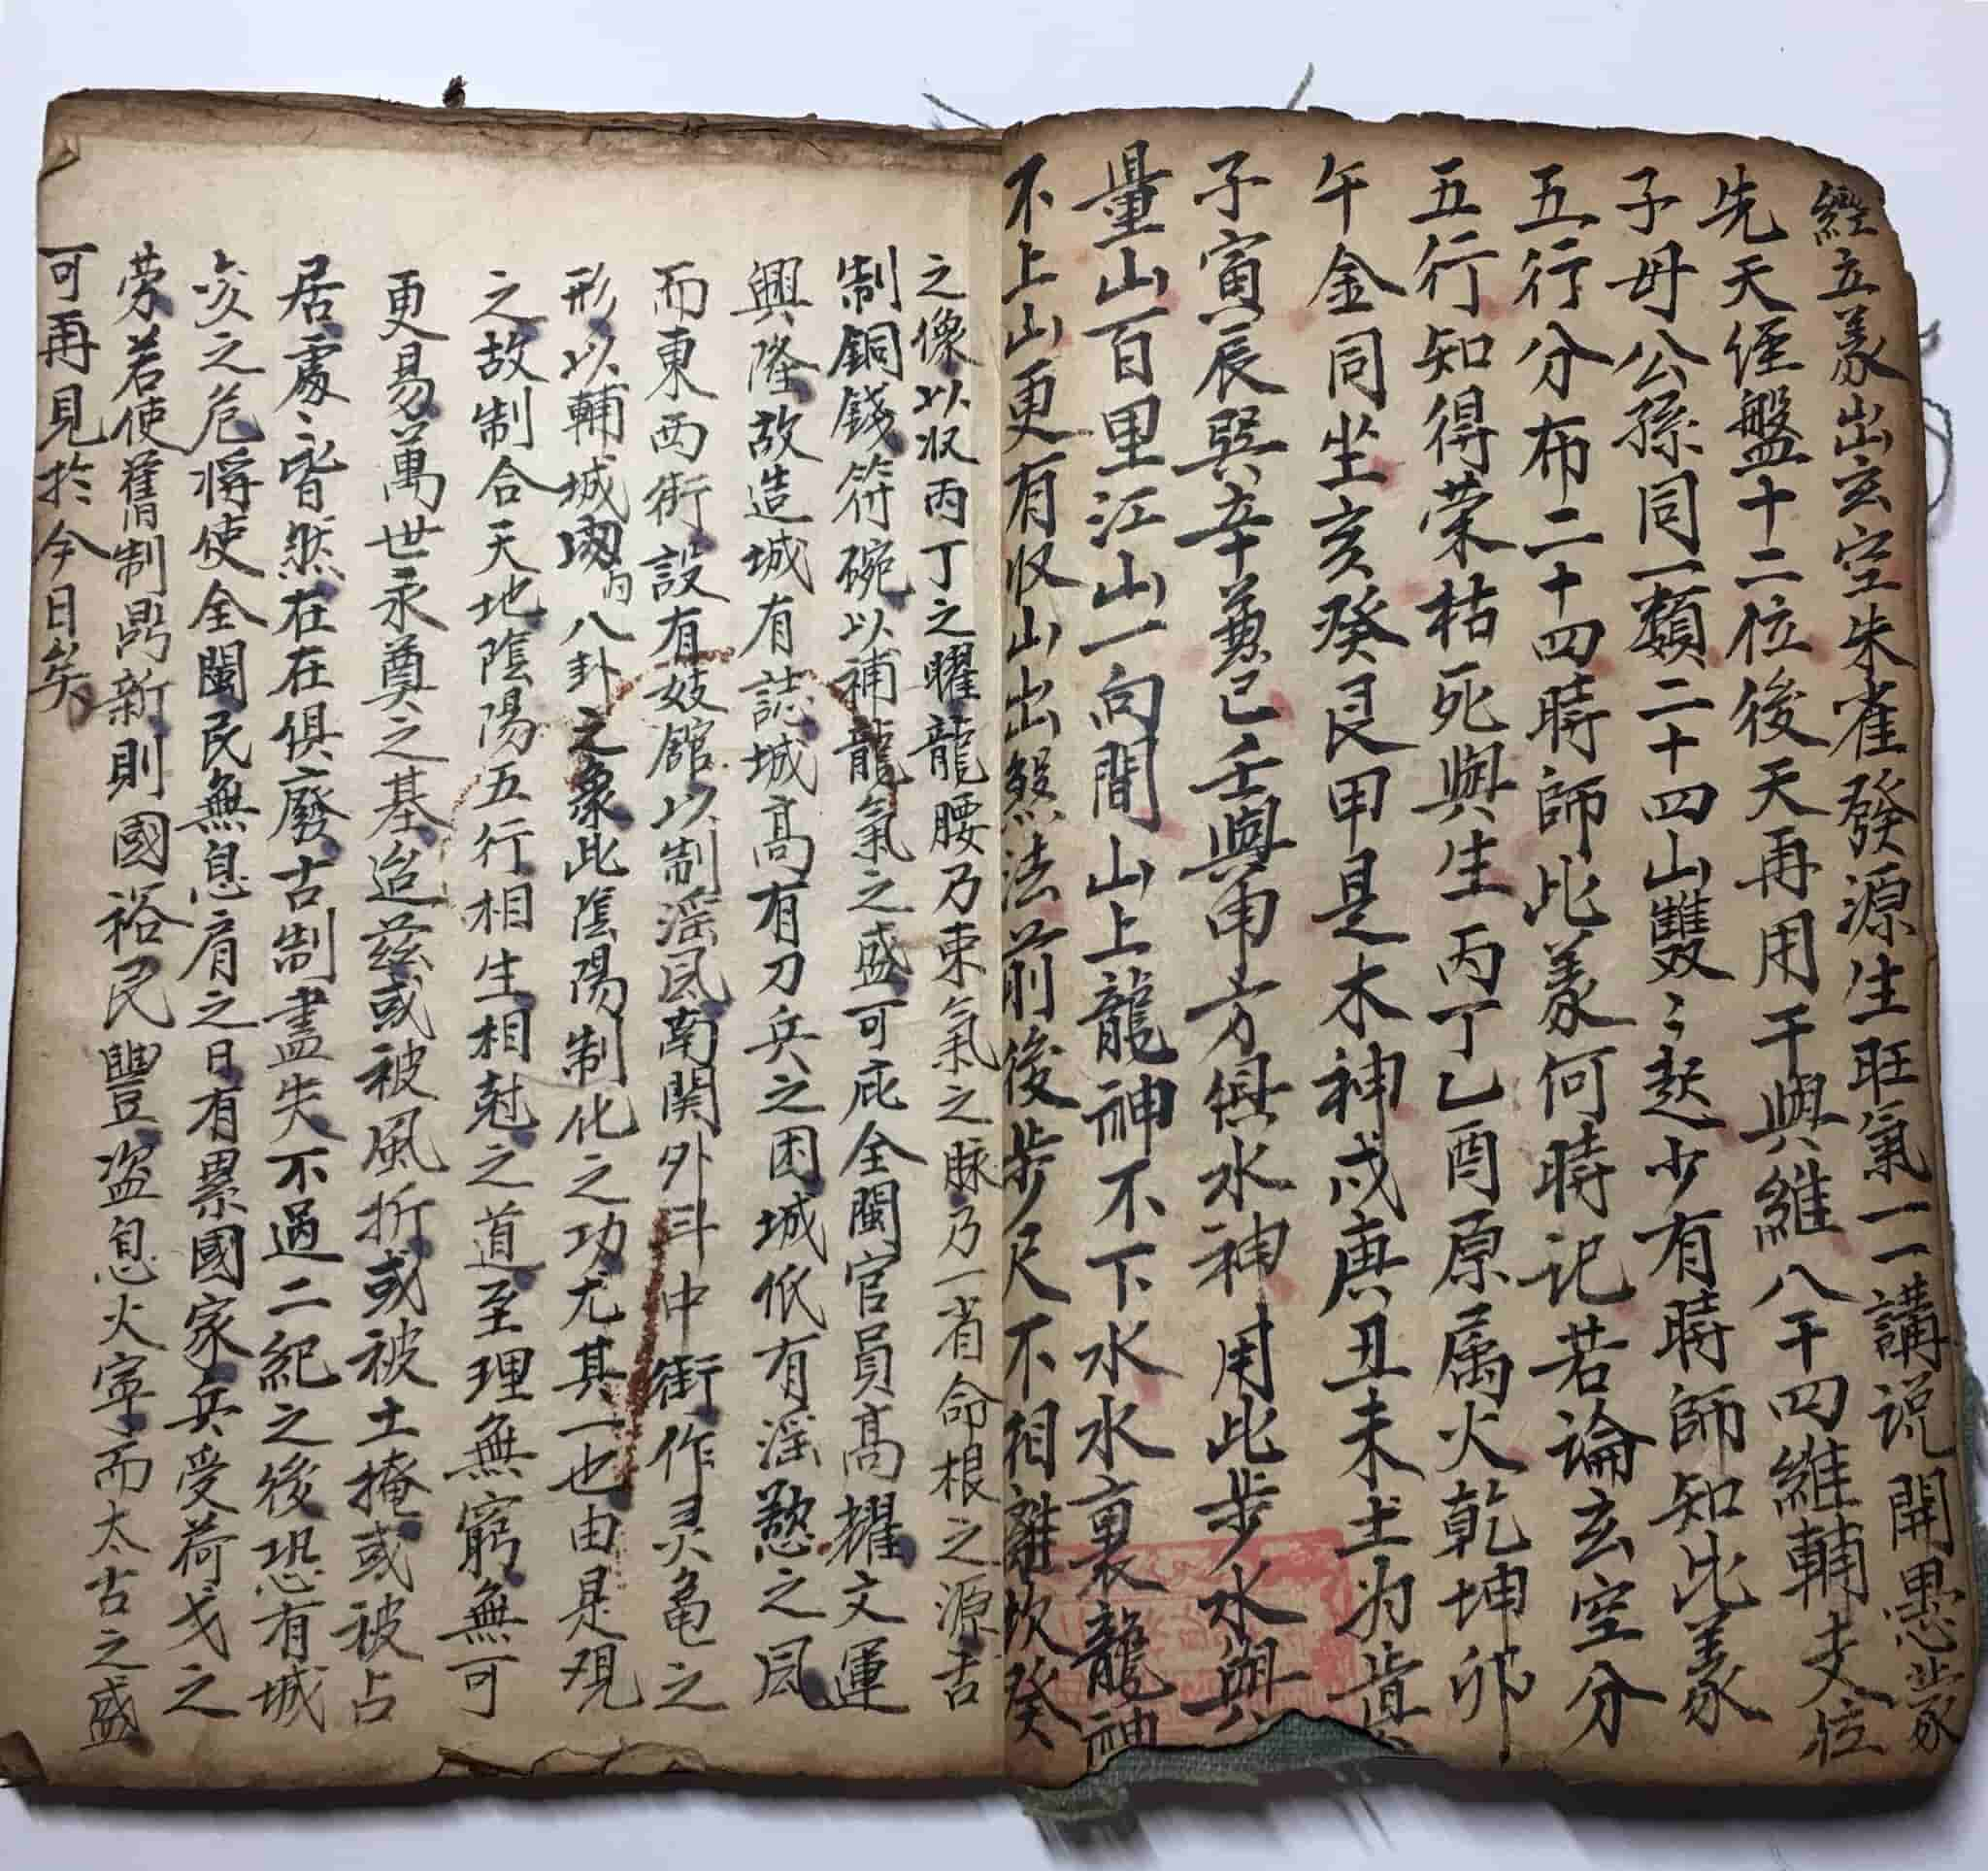 經立義出玄空朱雀發源生旺氣一一講說開愚蒙
先天経盤十二位後天再用干與維八干四維輔支位
子母公孫同一類二十四山雙〻起少有時師知此義
五行分布二十四時師此義何時記若論玄空分
五行知得荣枯死與生丙丁乙酉原属火乾坤卯
午金同坐亥癸艮甲是木神戌庚丑未土为眞
子寅辰巽辛兼巳壬與申方俱水神用此步水與
量山百里江山一向間山上龍神不下水水裏龍神
不上山更有収山出煞法前後步尺不相離坎癸
之像以収丙丁之曜龍腰乃東氣之脉乃一省命根之源古
制銅錢符碗以補龍氣之盛可庇全閩官員高擢文運
興隆故造城有誌城高有刀兵之困城低有滛慾之風
而東西街設有妓館以制滛風南関外斗中街作灵亀之
形以輔城内八卦之象此陰陽制化之功尤其一也由是观
之故制合天地陰陽五行相生相尅之道至理無窮無可
更易萬世永奠之基迨兹或被風折或被土掩或被占
居處〻皆然在在俱廢古制盡失不過二紀之後恐有城
崩之危将使全閩民無息肩之日有累國家兵受荷戈之
劳若使舊制鼎新則國裕民豐盗息火寕而太古之盛
可再見於今日矣